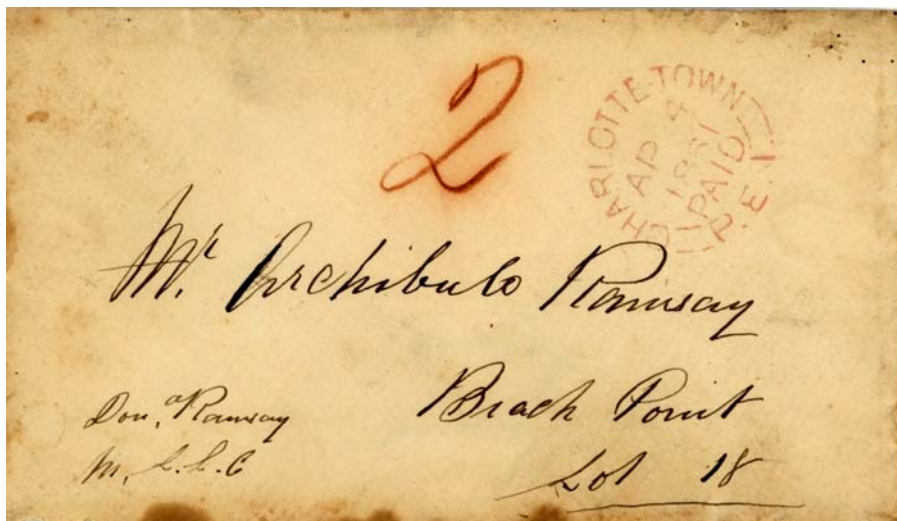 2
CHARLOTTE-TOWN
AP 4
1861
PAID
P.E.I.
Mr. Archibald Ramsay
Beach Point
Lot 18
Don.d Ramsay
M. L. C